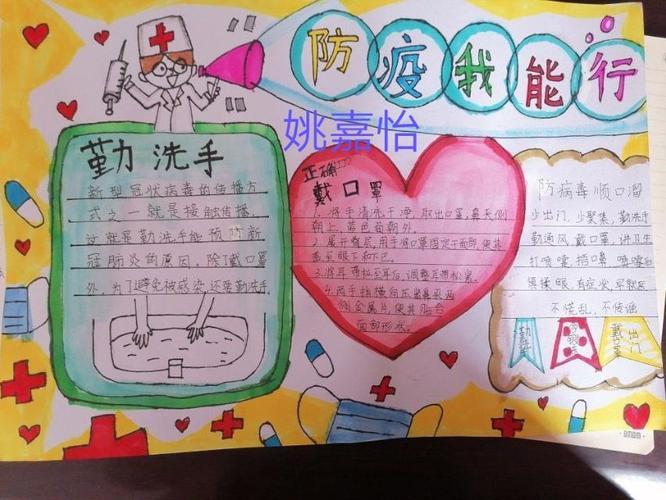 防疫我能行
姚嘉怡
勤洗手
新型冠状病毒的传播方
式之一就是接触传播。
这就是勤洗手能预防新
冠肺炎的原因。除了戴口罩
外，为了避免被感染，还要勤洗手
正确
戴口罩
1.将手清洗干净，取出口罩，鼻夹侧
朝上，蓝色面朝外。
2.展开叠层，用手将口罩固定于面部，使其
盖至眼下和下巴。
3.将耳带拉至耳后，调整耳带松紧。
4.两手指横向压出鼻夹两
侧金属片，使其贴合
面部形状。
防病毒顺口溜
少出门，少聚集，勤洗手
勤通风，戴口罩，讲卫生
打喷嚏，捂口鼻，喷嚏后
慎揉眼，有症状，早就医
不慌乱，不传谣
勤洗手
戴口罩
出门